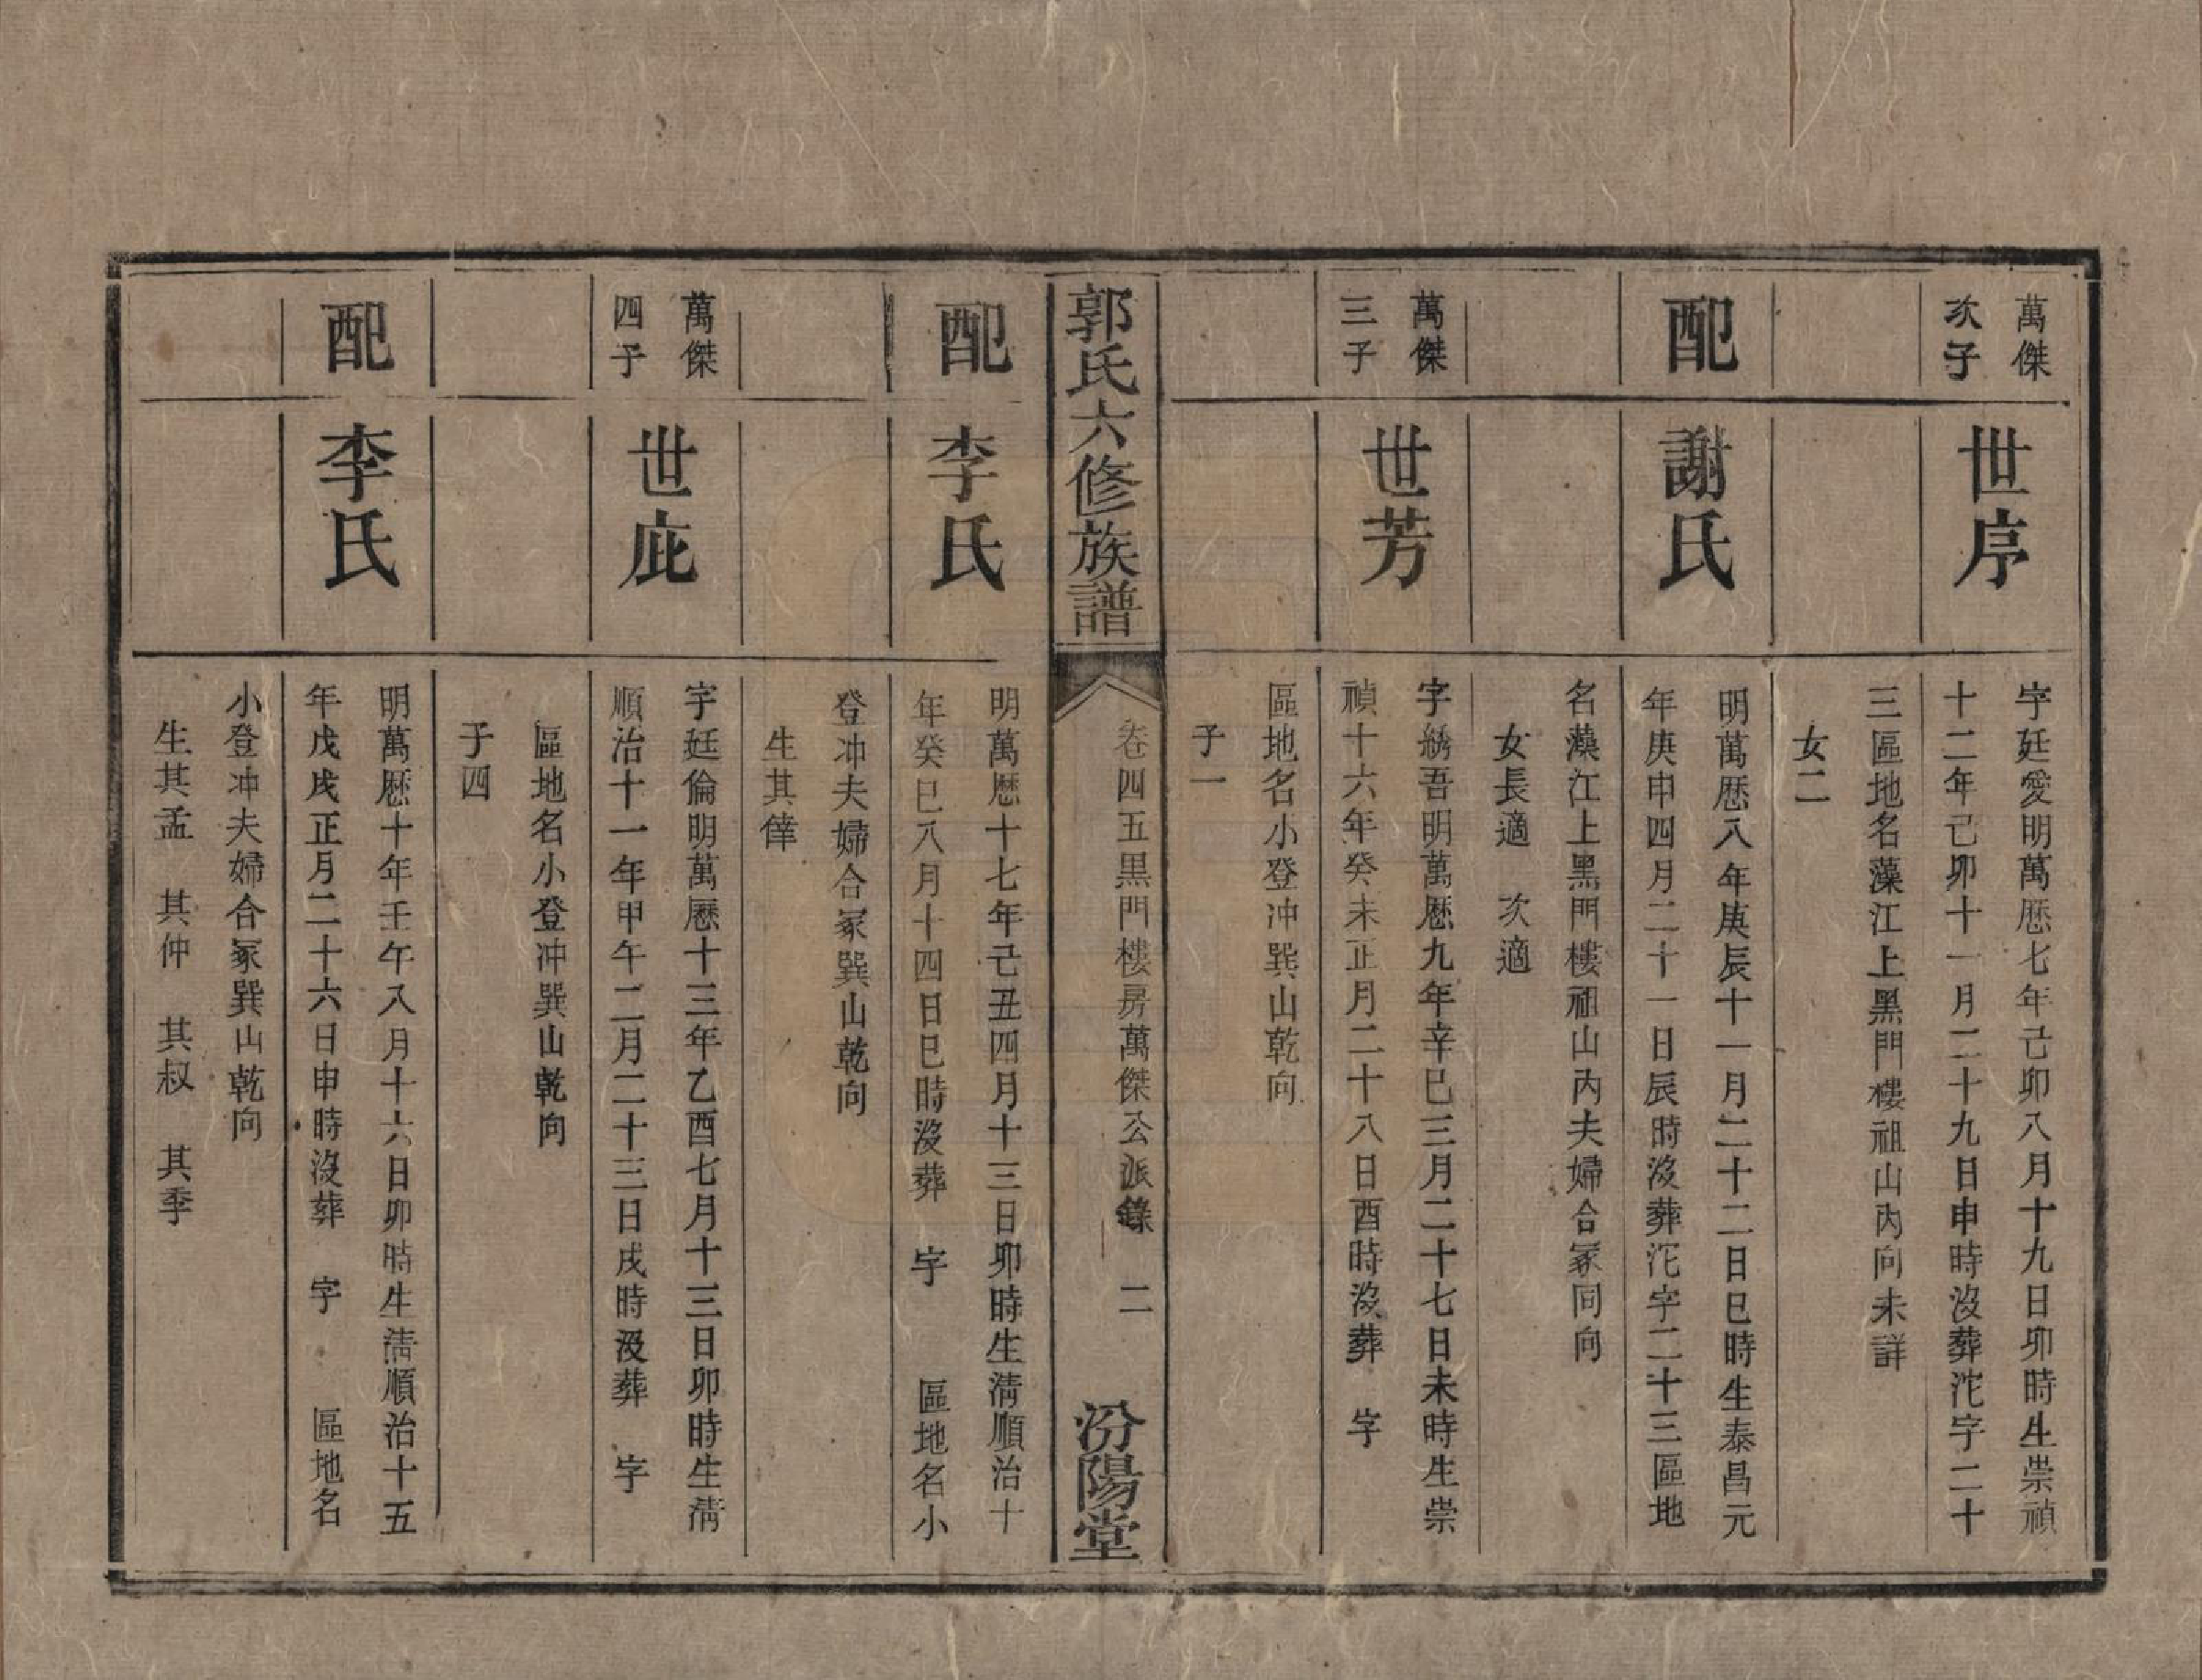 萬傑
次子
世序
字廷愛明萬歷七年己卯八月十九日卯時生崇禎
十二年己卯十一月二十九日申時沒葬沱字二十
三區地名藻江上黑門樓祖山內向未詳
女二
配
謝氏
明萬歷八年庚辰十一月二十二日巳時生泰昌元
年庚申四月二十一日辰時沒葬沱字二十三區地
名藻江上黑門樓祖山內夫婦合冢同向
女長適　次適
萬傑
三子
世芳
字綉吾明萬歷九年辛巳三月二十七日未時生崇
禎十六年癸未正月二十八日酉時沒葬　字
區地名小登冲巽山乾向
子一
郭氏六修族譜
卷四五黑門樓房萬傑公派錄　二
汾陽堂
配
李氏
明萬歷十七年己丑四月十三日卯時生淸順治十
年癸巳八月十四日巳時沒葬　字　　區地名小
登冲夫婦合冢巽山乾向
生其倖
萬傑
四子
世庇
字廷倫明萬歷十三年乙酉七月十三日卯時生淸
順治十一年甲午二月二十三日戌時沒葬　字
區地名小登冲巽山乾向
子四
配
李氏
明萬歷十年壬午八月十六日卯時生淸順治十五
年戊戌正月二十六日申時沒葬　字　　區地名
小登冲夫婦合冢巽山乾向
生其孟　其仲　其叔　其季